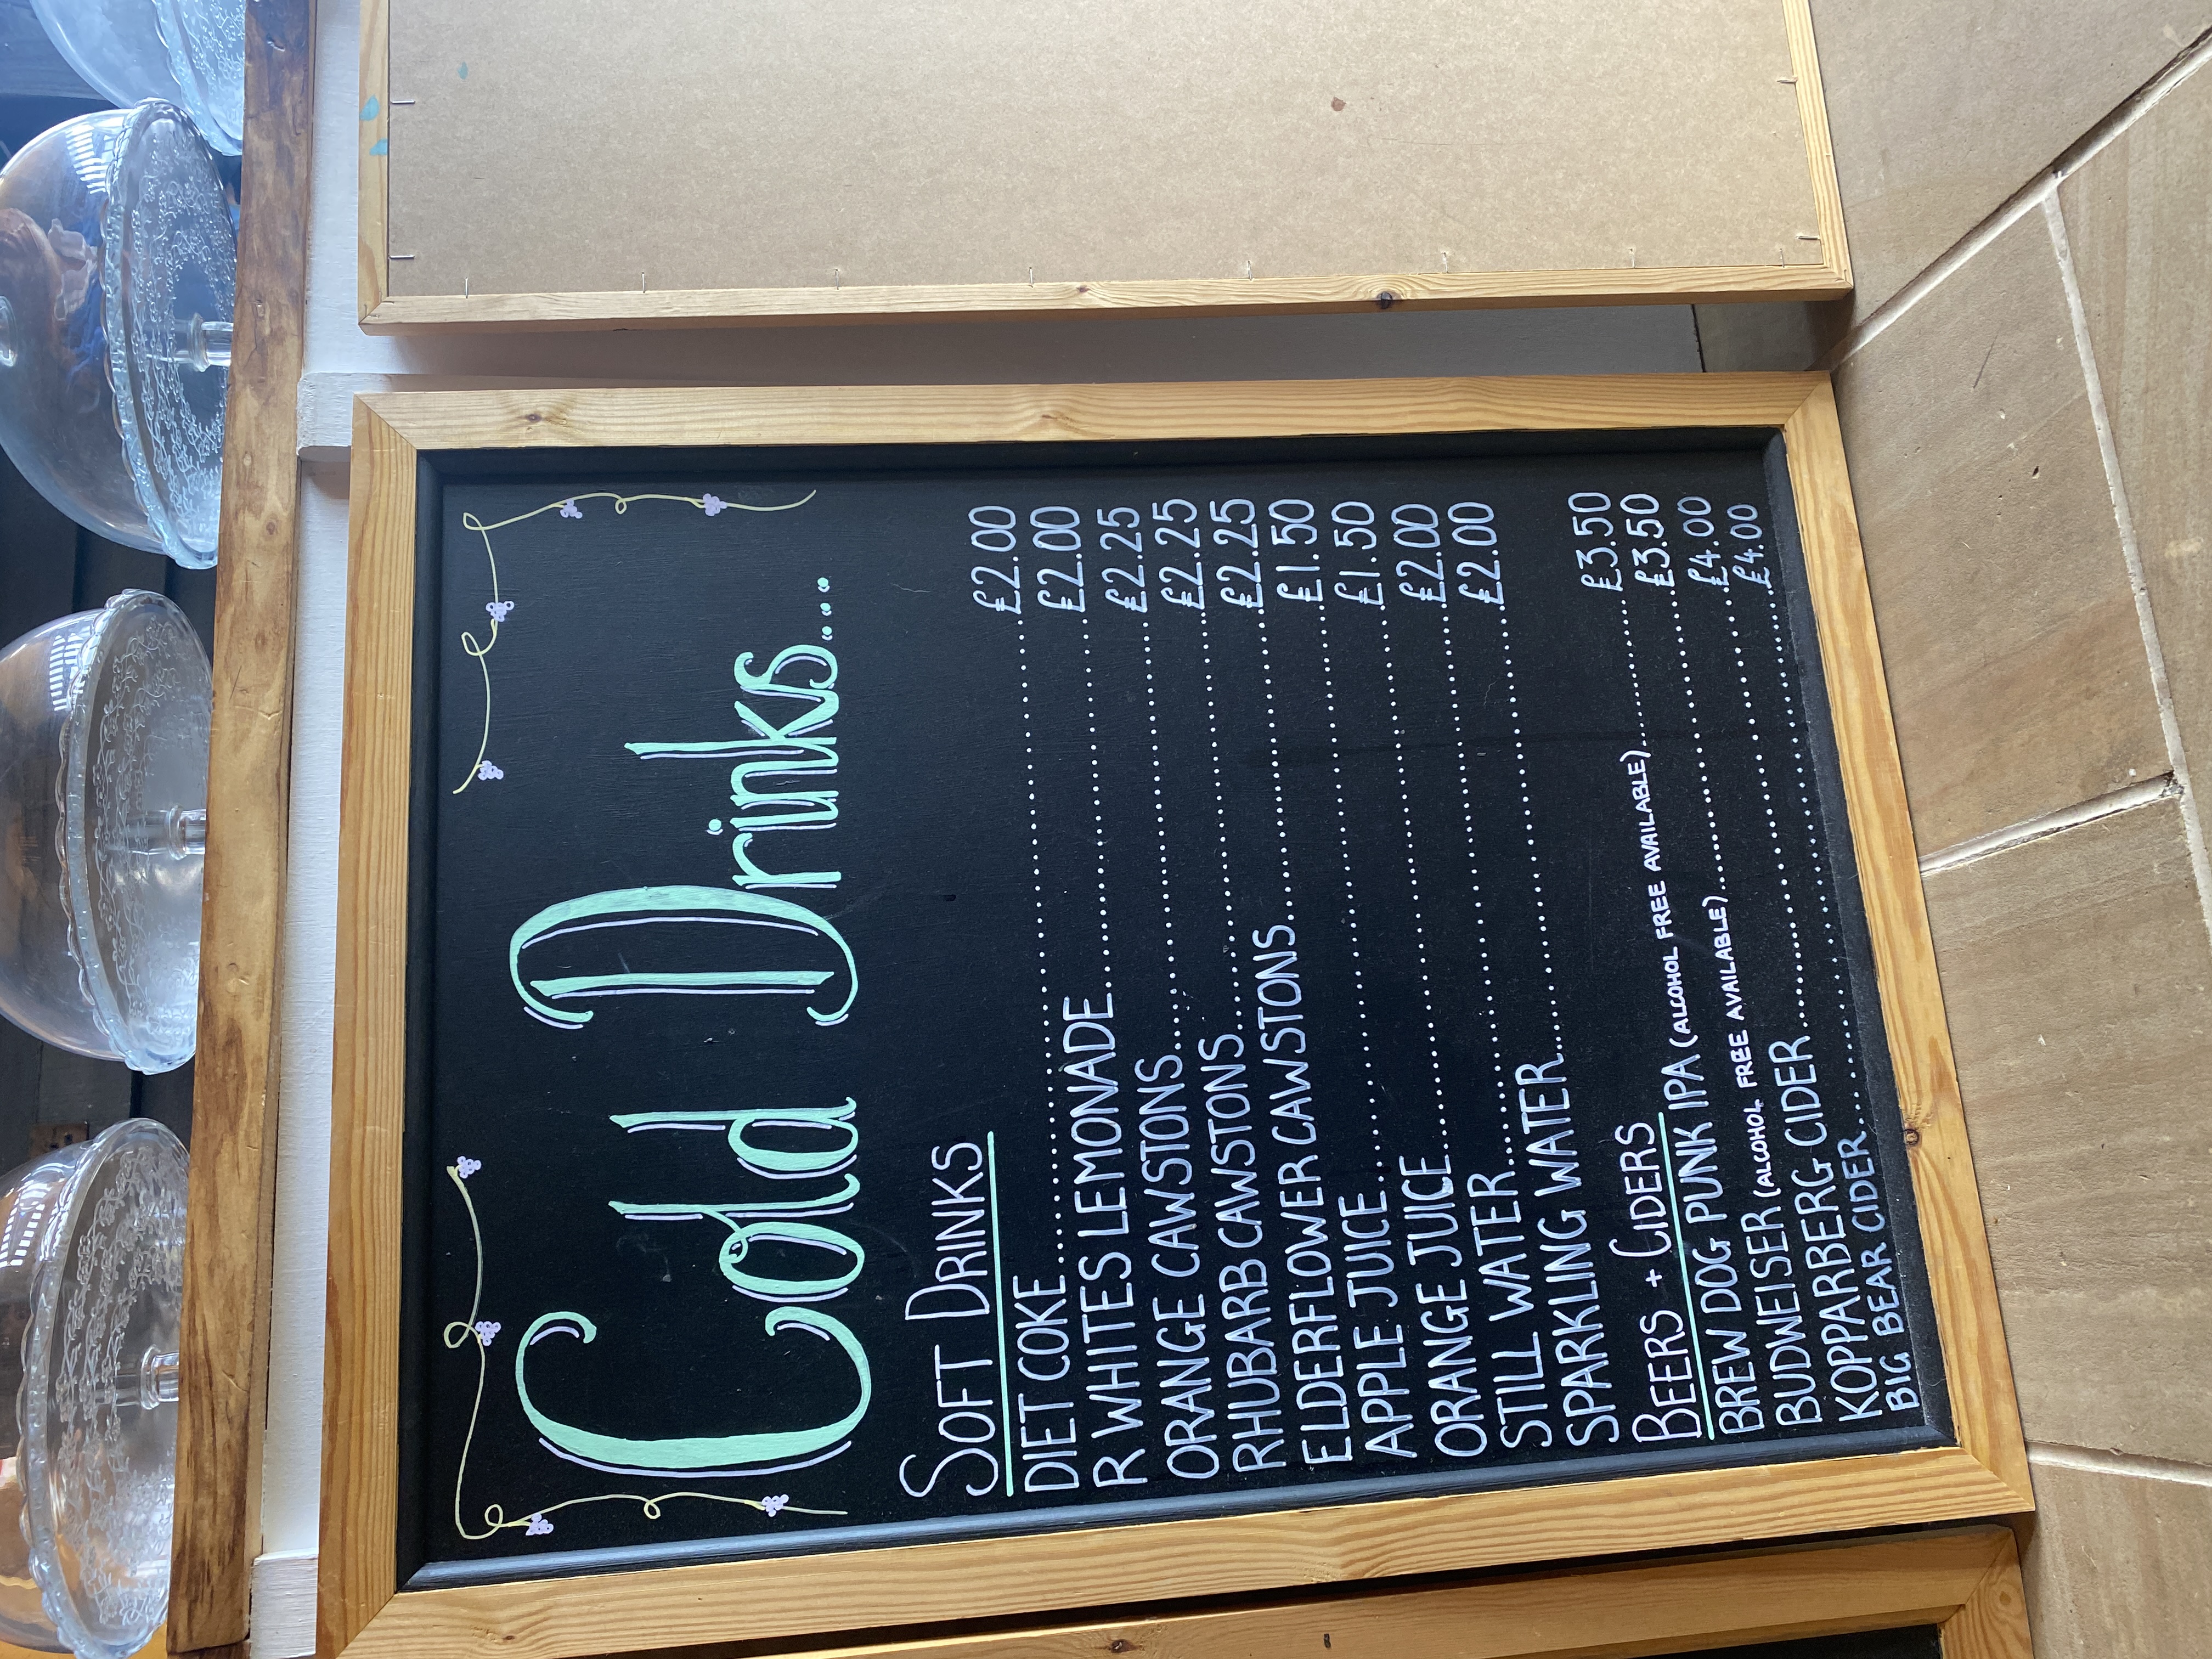 Cold Drinks...
SOFT DRINKS
DIET COKE........................................£2.00
R WHITES LEMONADE........................£2.00
ORANGE CAWSTONS............................£2.25
RHUBARB CAWSTONS..........................£2.25
ELDERFLOWER CAWSTONS..................£2.25
APPLE JUICE....................................£1.50
ORANGE JUICE..................................£1.50
STILL WATER....................................£2.00
SPARKLING WATER............................£2.00
BEERS + CIDERS
BREW DOG PUNK IPA (ALCOHOL FREE AVAILABLE)............£3.50
BUDWEISER (ALCOHOL FREE AVAILABLE)....................£3.50
KOPPARBERG CIDER............................£4.00
BIG BEAR CIDER................................£4.00